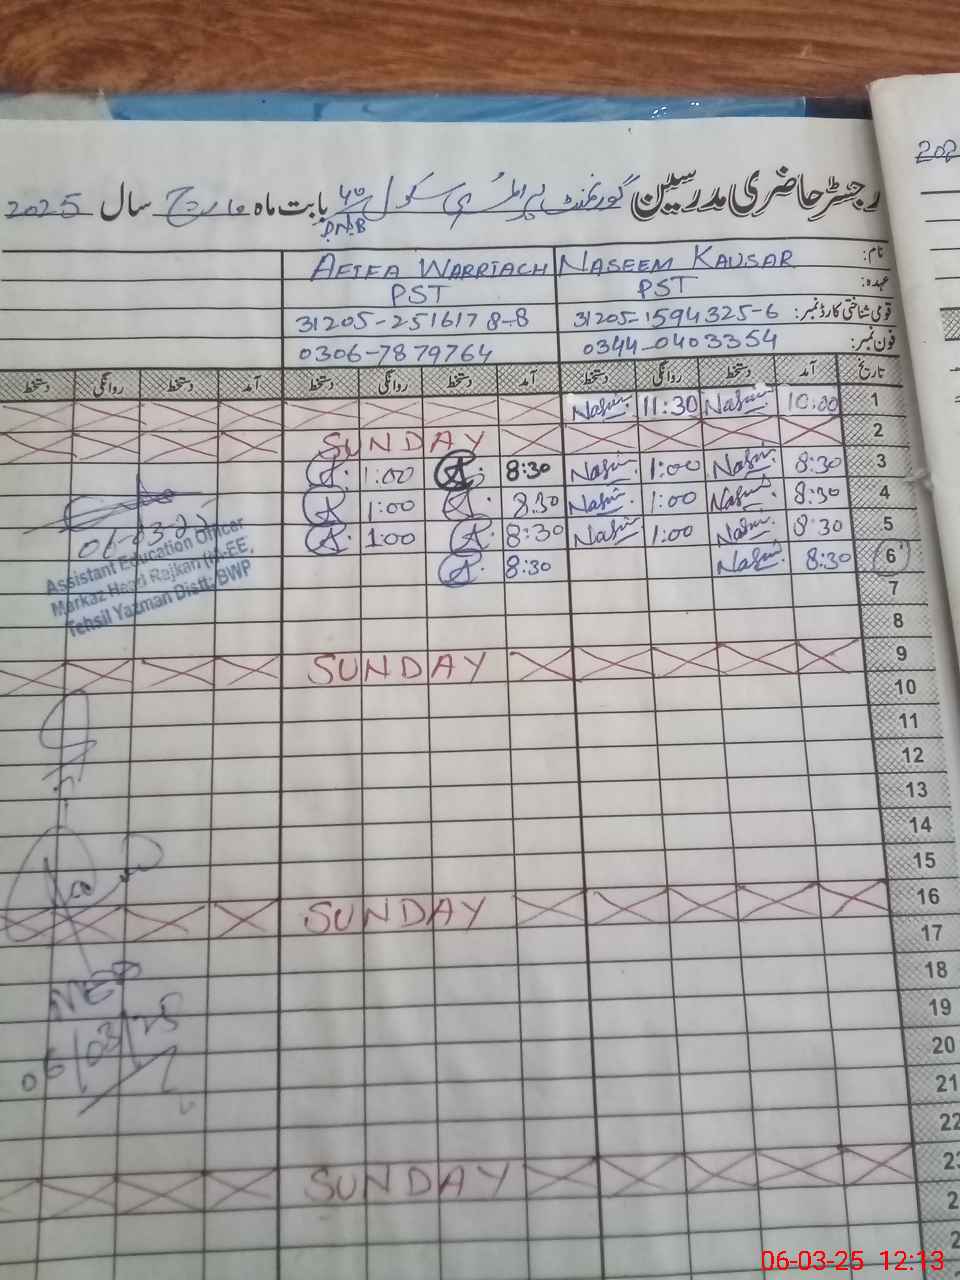 رجسٹر حاضری مدرسین گورنمنٹ پرائمری سکول 40 DNB بابت ماہ مارچ سال 2025
نام: NASEEM KAUSAR AFIFA WARRIACH
عہدہ: PST PST
قومی شناختی کارڈ نمبر: 31205-1594325-6 31205-2516178-8
فون نمبر: 0344-0403354 0306-7879764
تاریخ آمد دستخط روانگی دستخط آمد دستخط روانگی دستخط آمد دستخط روانگی دستخط
1 10:00 Nasim 11:30 Nasim
2 SUNDAY
3 8:30 Nasim 1:00 Nasim 8:30 A. 1:00 A.
4 8:30 Nasim 1:00 Nasim 8:30 A. 1:00 A.
5 8:30 Nasim 1:00 Nasim 8:30 A. 1:00 A.
6 8:30 Nasim 8:30 A.
7
8
9 SUNDAY
10
11
12
13
14
15
16 SUNDAY
17
18
19
20
21
22
23 SUNDAY
06-03-25
Assistant Education Officer
Markaz Head Rajkan (W-EE,
Tehsil Yazman Distt: BWP
06/03/25
202
06-03-25 12:13